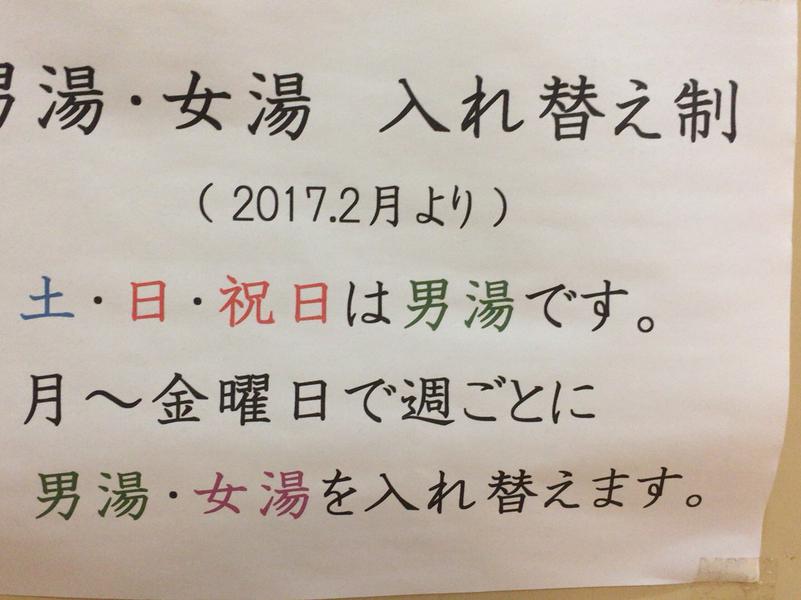 男湯・女湯 入れ替え制
（2017.2月より）
土・日・祝日は男湯です。
月～金曜日で週ごとに
男湯・女湯を入れ替えます。